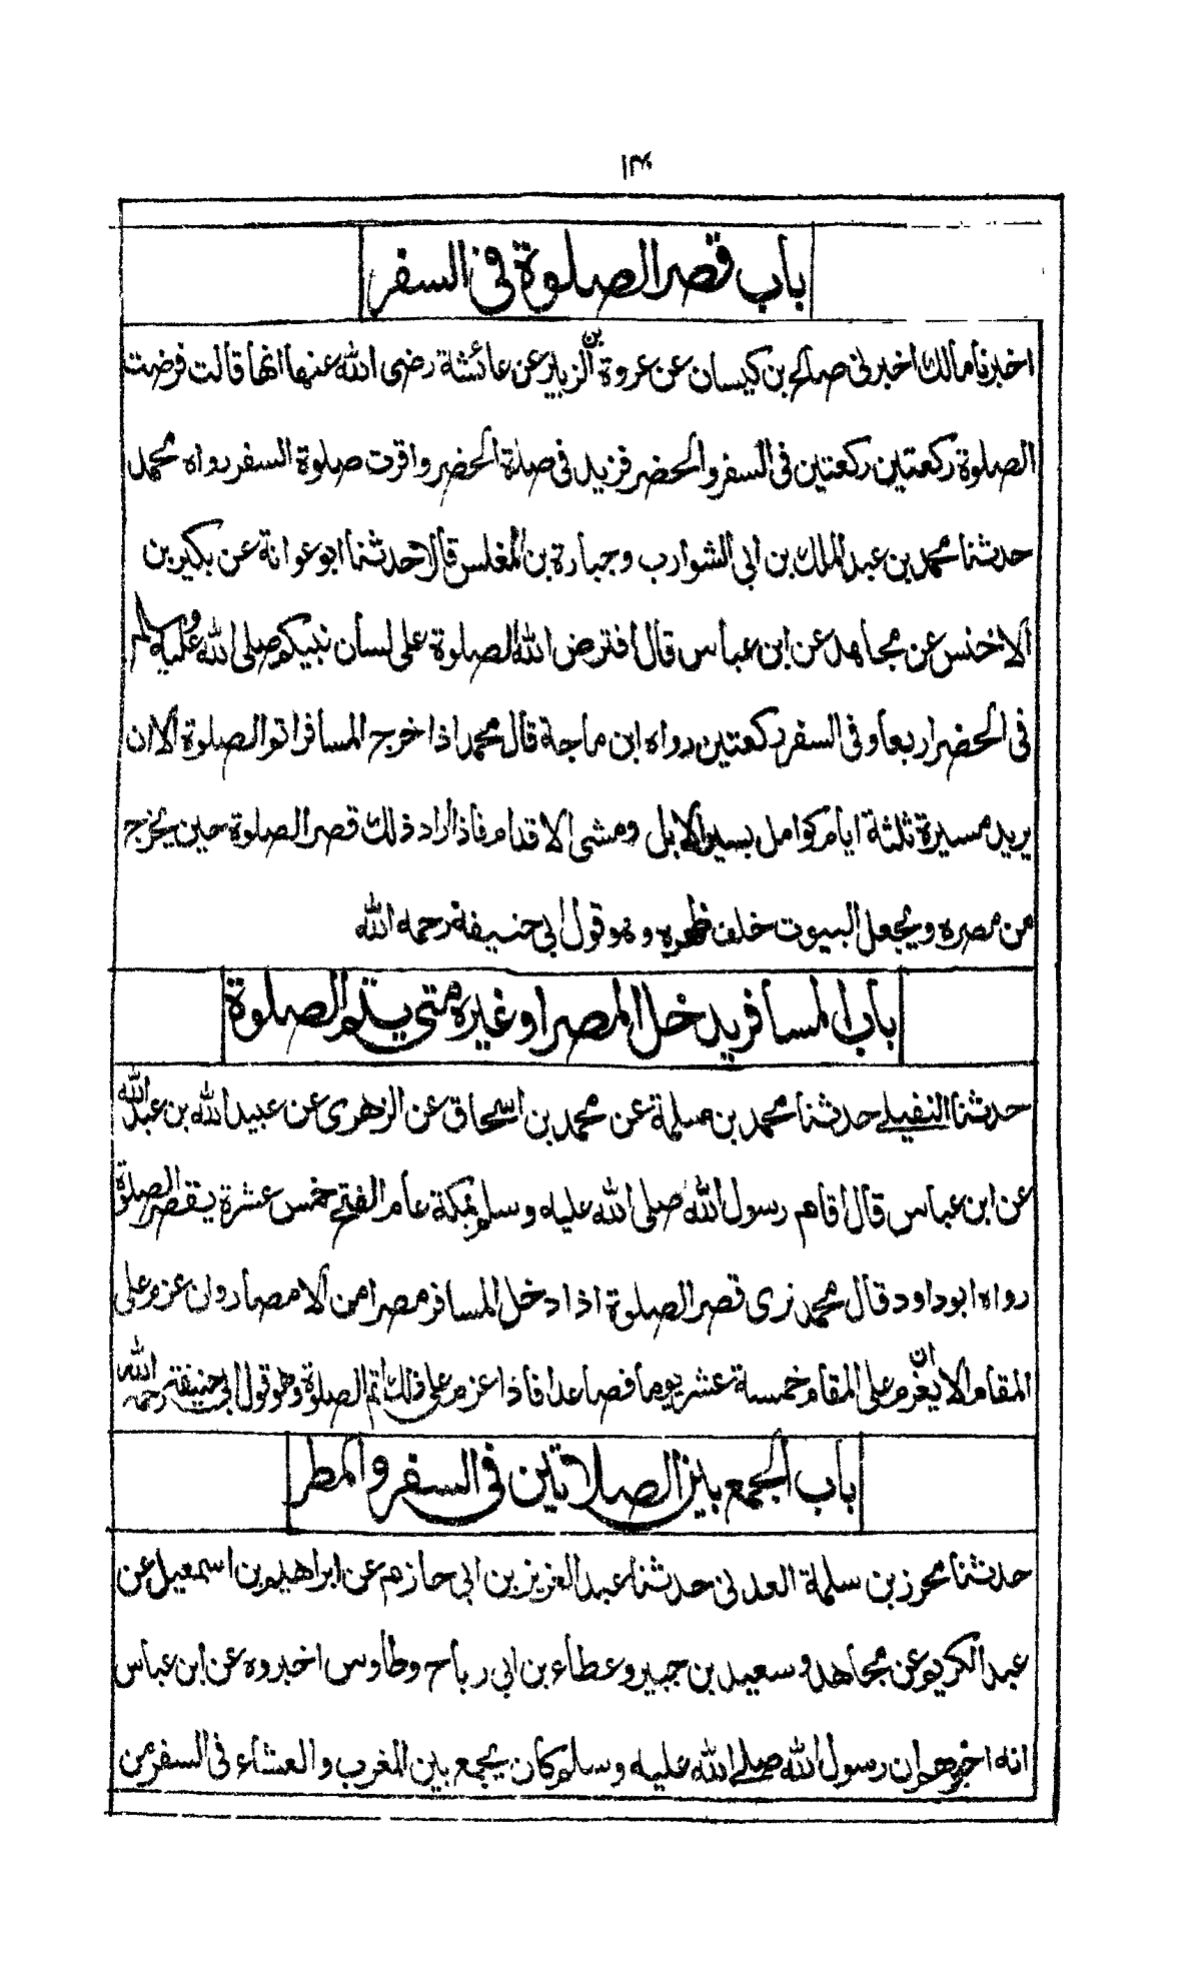 ۱۳۰
باب قصر الصلوة في السفر
اخبرنا مالك اخبرني صالح بن كيسان عن عروة بن الزبير عن عائشة رضى الله عنها انها قالت فرضت
الصلوة ركعتين ركعتين فى السفر والحضر فزيد فى صلوة الحضر واقرت صلوة السفر رواه محمد
حدثنا محمد بن عبد الملك بن ابي الشوارب وجبارة بن المغلس قالا حدثنا ابو عوانة عن بكير بن
الاخنس عن مجاهد عن ابن عباس قال افترض الله الصلوة على لسان نبيكم صلى الله عليه وسلم
فى الحضر اربعا وفى السفر ركعتين رواه ابن ماجة قال محمد اذا خرج المسافر اتم الصلوة الا ان
يريد مسيرة ثلثة ايام كوامل بسير الابل ومشى الاقدام فاذا اراد ذلك قصر الصلوة حين يخرج
من مصره ويجعل البيوت خلف ظهره وهو قول ابي حنيفة رحمه الله
باب المسافر يدخل المصر او غيره متى يتم الصلوة
حدثنا النفيلے حدثنا محمد بن سلمة عن محمد بن اسحاق عن الزهرى عن عبيد الله بن عبد الله
عن ابن عباس قال اقام رسول الله صلى الله عليه وسلم بمكة عام الفتح خمس عشرة يقصر الصلوة
رواه ابو داود قال محمد نرى قصر الصلوة اذا دخل المسافر مصرا من الامصار وان عزم على
المقام الا ان يعزم على المقام خمسة عشر يوما فصاعدا فاذا عزم على ذلك اتم الصلوة وهو قول ابي حنيفة رحمه الله
باب الجمع بين الصلاتين فى السفر والمطر
حدثنا محرز بن سلمة العدنى حدثنا عبد العزيز بن ابي حازم عن ابراهيم بن اسمعيل عن
عبد الكريم عن مجاهد وسعيد بن جبير وعطاء بن ابي رباح وطاوس اخبروه عن ابن عباس
انه اخبرهم ان رسول الله صلے الله عليه وسلم كان يجمع بين المغرب والعشاء فى السفر من